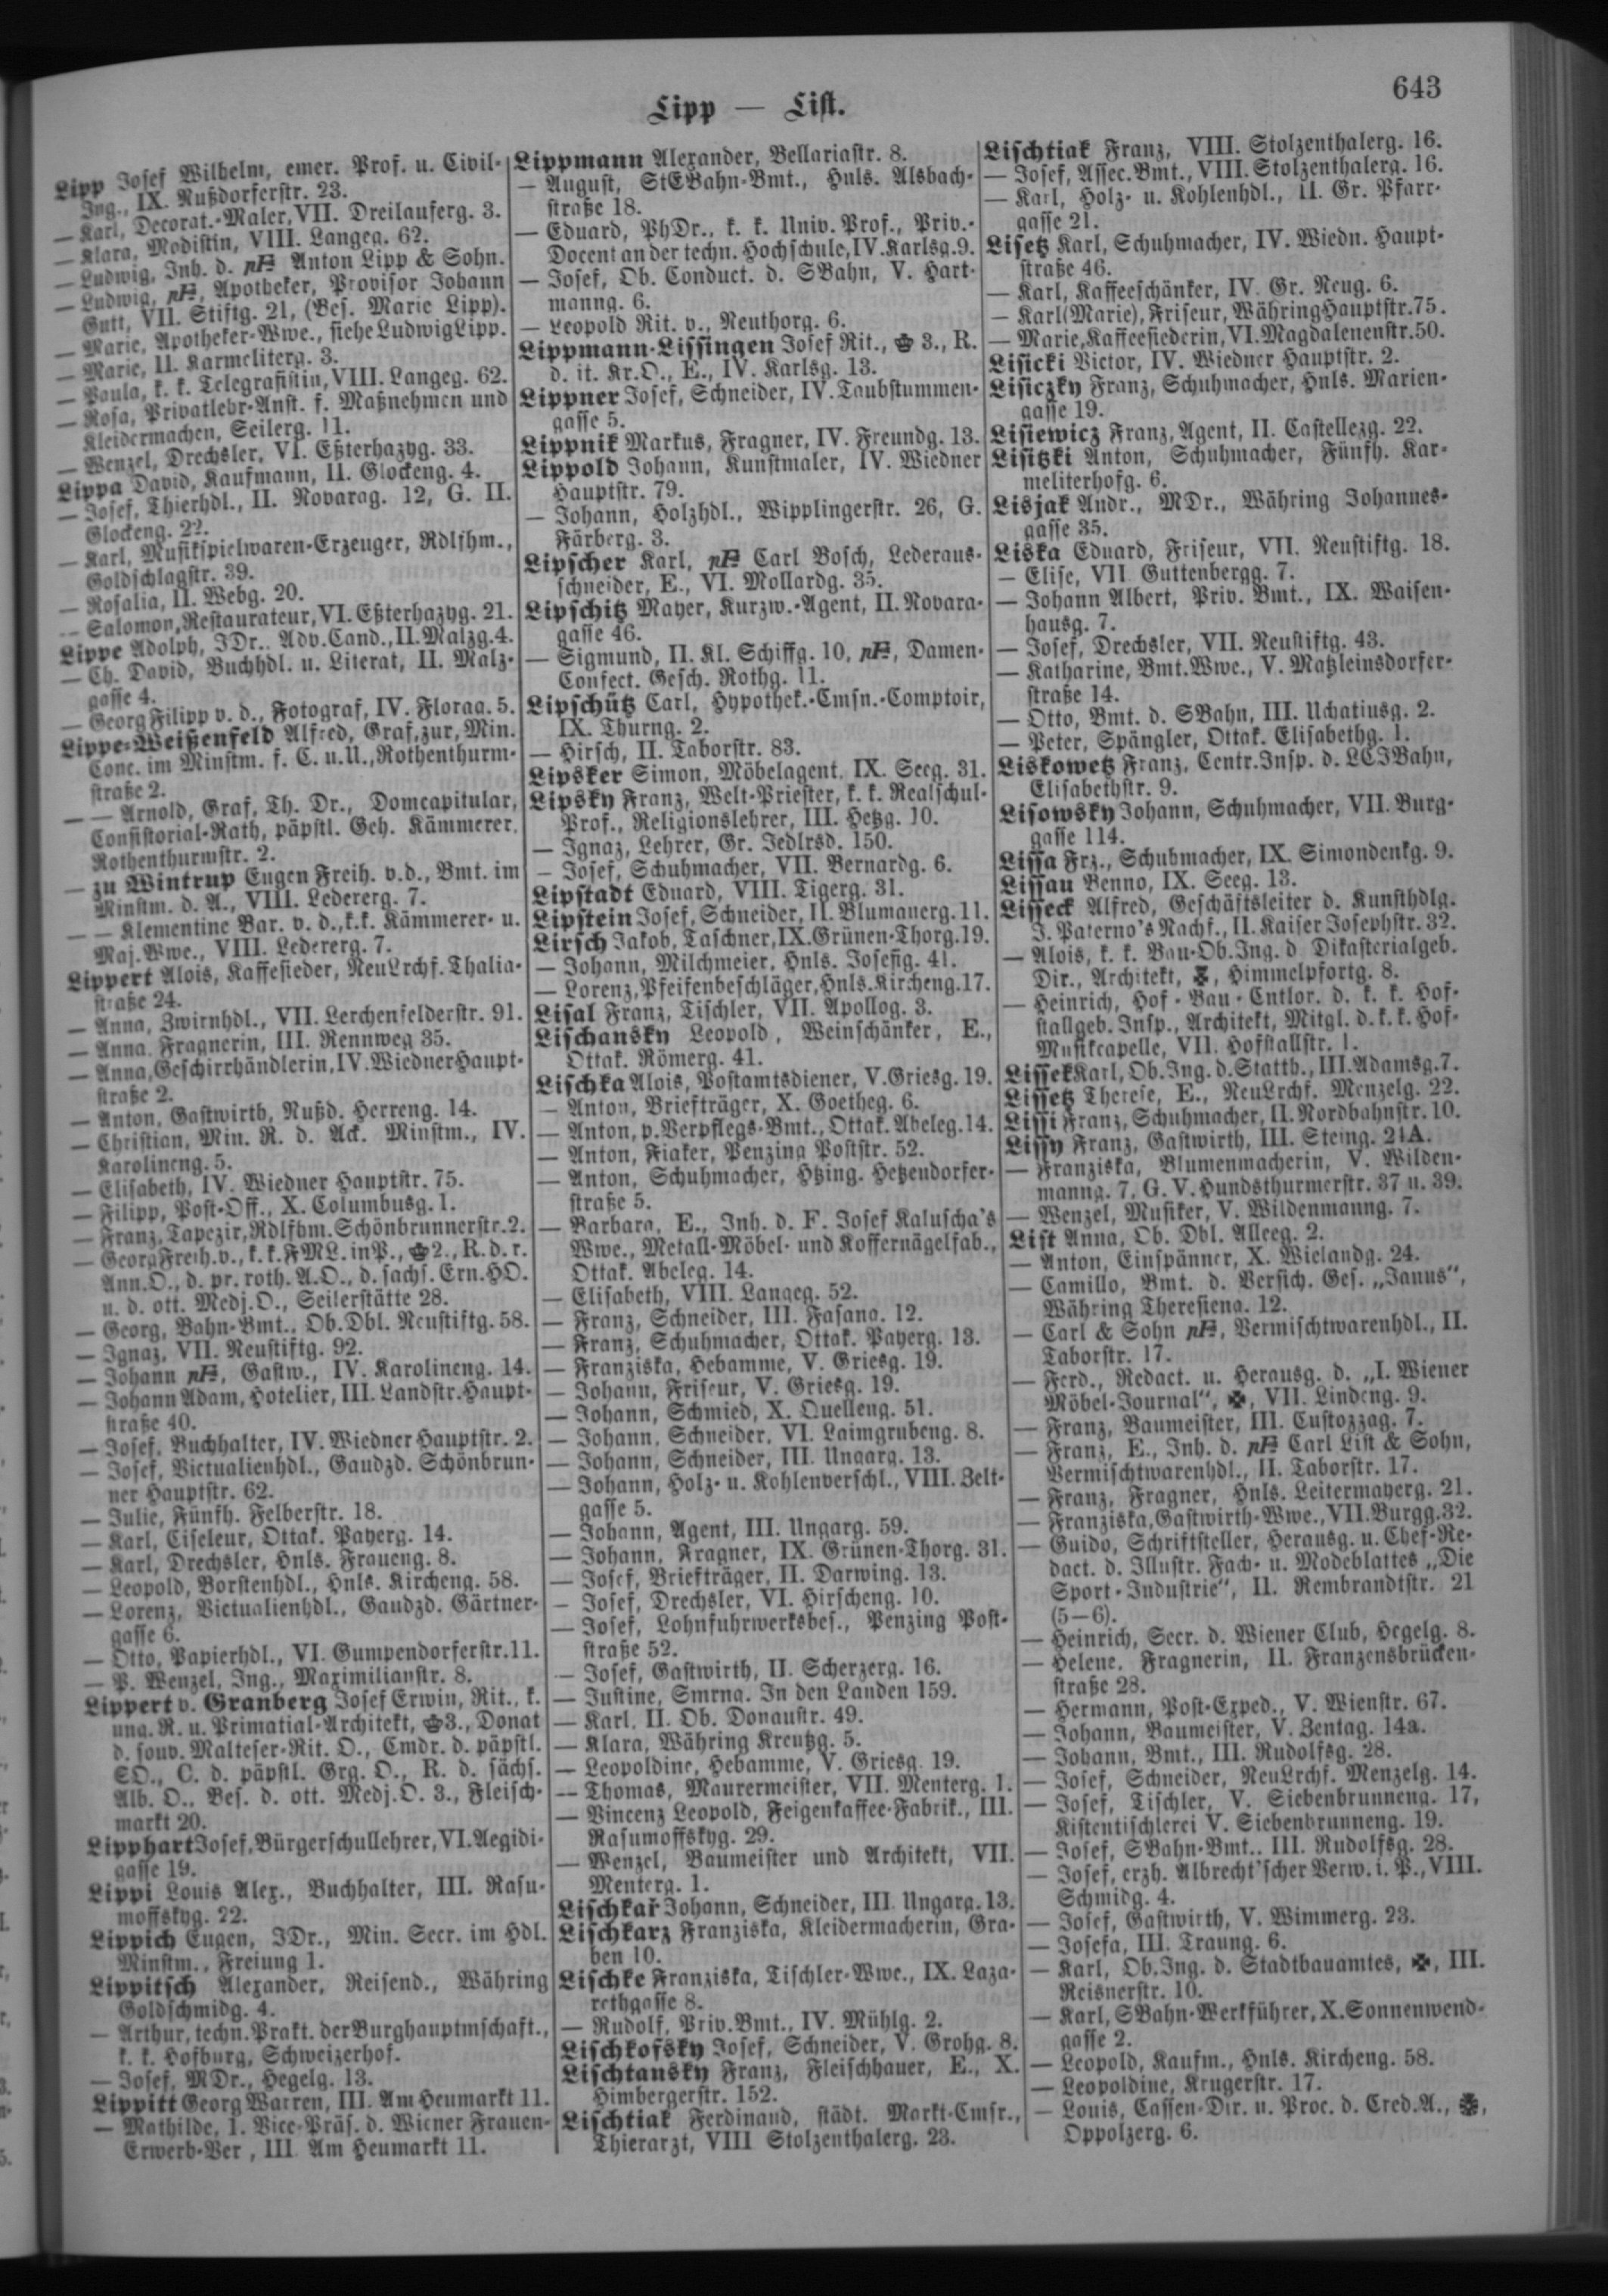 643
Lipp — List.
Lipp Josef Wilhelm, emer. Prof. u. Civil-
Ing., IX. Nußdorferstr. 23.
— Karl, Decorat.-Maler, VII. Dreilauferg. 3.
— Klara, Modistin, VIII. Langeg. 62.
— Ludwig, Inh. d. Anton Lipp & Sohn.
— Ludwig, Apotheker, Provisor Johann
Gutt, VII. Stiftg. 21, (Bes. Marie Lipp).
— Marie, Apotheker-Wwe., siehe Ludwig Lipp.
— Marie, II. Karmeliterg. 3.
— Paula, k. k. Telegrafistin, VIII. Langeg. 62.
— Rosa, Privatlehr-Anst. f. Maßnehmen und
Kleidermachen, Seilerg. 11.
— Wenzel, Drechsler, VI. Eßterhazyg. 33.
Lippa David, Kaufmann, II. Glockeng. 4.
— Josef, Thierhdl., II. Novarag. 12, G. II.
Glockeng. 22.
— Karl, Musikspielwaren-Erzeuger, Rdlfhm.,
Goldschlagstr. 39.
— Rosalia, II. Webg. 20.
— Salomon, Restaurateur, VI. Eßterhazyg. 21.
Lippe Adolph, JDr., Adv. Cand., II. Malzg. 4.
— Ch. David, Buchhdl. u. Literat, II. Malz-
gasse 4.
— Georg Filipp v. d., Fotograf, IV. Florag. 5.
Lippe-Weißenfeld Alfred, Graf, zur, Min.
Conc. im Minstm. f. C. u. U., Rothenthurm-
straße 2.
— — Arnold, Graf, Th. Dr., Domcapitular,
Consistorial-Rath, päpstl. Geh. Kämmerer,
Rothenthurmstr. 2.
— zu Wintrup Eugen Freih. v. d., Bmt. im
Minstm. d. A., VIII. Ledererg. 7.
— — Klementine Bar. v. d., k. k. Kämmerer- u.
Maj. Wwe., VIII. Ledererg. 7.
Lippert Alois, Kaffesieder, NeuLrchf. Thalia-
straße 24.
— Anna, Zwirnhdl., VII. Lerchenfelderstr. 91.
— Anna, Fragnerin, III. Rennweg 35.
— Anna, Geschirrhändlerin, IV. Wiedner Haupt-
straße 2.
— Anton, Gastwirth, Nußd. Herreng. 14.
— Christian, Min. R. d. Ack. Minstm., IV.
Karolineng. 5.
— Elisabeth, IV. Wiedner Hauptstr. 75.
— Filipp, Post-Off., X. Columbusg. 1.
— Franz, Tapezir, Rdlfhm. Schönbrunnerstr. 2.
— Georg Freih. v., k. k. FML. in P., 2., R. d. r.
Ann. O., d. pr. roth. A. O., d. sachs. Ern. HO.
u. d. ott. Medj. O., Seilerstätte 28.
— Georg, Bahn-Bmt., Ob. Dbl. Neustiftg. 58.
— Ignaz, VII. Neustiftg. 92.
— Johann, Gastw., IV. Karolineng. 14.
— Johann Adam, Hotelier, III. Landstr. Haupt-
straße 40.
— Josef, Buchhalter, IV. Wiedner Hauptstr. 2.
— Josef, Victualienhdl., Gaudzd. Schönbrun-
ner Hauptstr. 62.
— Julie, Fünfh. Felberstr. 18.
— Karl, Ciseleur, Ottak. Payerg. 14.
— Karl, Drechsler, Hnls. Fraueng. 8.
— Leopold, Borstenhdl., Hnls. Kircheng. 58.
— Lorenz, Victualienhdl., Gaudzd. Gärtner-
gasse 6.
— Otto, Papierhdl., VI. Gumpendorferstr. 11.
— P. Wenzel, Ing., Maximilianstr. 8.
Lippert v. Granberg Josef Erwin, Rit., k.
ung. R. u. Primatial-Architekt, 3., Donat
d. souv. Malteser-Rit. O., Cmdr. d. päpstl.
SO., C. d. päpstl. Grg. O., R. d. sächs.
Alb. O., Bes. d. ott. Medj. O. 3., Fleisch-
markt 20.
Lipphart Josef, Bürgerschullehrer, VI. Aegidi-
gasse 19.
Lippi Louis Alex., Buchhalter, III. Rasu-
moffskyg. 22.
Lippich Eugen, JDr., Min. Secr. im Hdl.
Minstm., Freiung 1.
Lippitsch Alexander, Reisend., Währing
Goldschmidg. 4.
— Arthur, techn. Prakt. der Burghauptmschaft.,
k. k. Hofburg, Schweizerhof.
— Josef, MDr., Hegelg. 13.
Lippitt Georg Warren, III. Am Heumarkt 11.
— Mathilde, 1. Vice-Präs. d. Wiener Frauen-
Erwerb-Ver, III. Am Heumarkt 11.
Lippmann Alexander, Bellariastr. 8.
— August, StEBahn-Bmt., Hnls. Alsbach-
straße 18.
— Eduard, PhDr., k. k. Univ. Prof., Priv.-
Docent an der techn. Hochschule, IV. Karlsg. 9.
— Josef, Ob. Conduct. d. SBahn, V. Hart-
manng. 6.
— Leopold Rit. v., Neuthorg. 6.
Lippmann-Lissingen Josef Rit., 3., R.
d. it. Kr. O., E., IV. Karlsg. 13.
Lippner Josef, Schneider, IV. Taubstummen-
gasse 5.
Lippnik Markus, Fragner, IV. Freundg. 13.
Lippold Johann, Kunstmaler, IV. Wiedner
Hauptstr. 79.
— Johann, Holzhdl., Wipplingerstr. 26, G.
Färberg. 3.
Lipscher Karl, Carl Bosch, Lederaus-
schneider, E., VI. Mollardg. 35.
Lipschitz Mayer, Kurzw.-Agent, II. Novara-
gasse 46.
— Sigmund, II. Kl. Schiffg. 10, Damen-
Confect. Gesch. Rothg. 11.
Lipschütz Carl, Hypothek.-Cmsn.-Comptoir,
IX. Thurng. 2.
— Hirsch, II. Taborstr. 83.
Lipsker Simon, Möbelagent, IX. Seeg. 31.
Lipsky Franz, Welt-Priester, k. k. Realschul-
Prof., Religionslehrer, III. Hetzg. 10.
— Ignaz, Lehrer, Gr. Jedlrsd. 150.
— Josef, Schuhmacher, VII. Bernardg. 6.
Lipstadt Eduard, VIII. Tigerg. 31.
Lipstein Josef, Schneider, II. Blumauerg. 11.
Lirsch Jakob, Taschner, IX. Grünen-Thorg. 19.
— Johann, Milchmeier, Hnls. Josefig. 41.
— Lorenz, Pfeifenbeschläger, Hnls. Kircheng. 17.
Lisal Franz, Tischler, VII. Apollog. 3.
Lischansky Leopold, Weinschänker, E.,
Ottak. Römerg. 41.
Lischka Alois, Postamtsdiener, V. Griesg. 19.
— Anton, Briefträger, X. Goetheg. 6.
— Anton, p. Verpflegs-Bmt., Ottak. Abeleg. 14.
— Anton, Fiaker, Penzing Poststr. 52.
— Anton, Schuhmacher, Htzing. Hetzendorfer-
straße 5.
— Barbara, E., Inh. d. F. Josef Kaluscha's
Wwe., Metall-Möbel- und Koffernägelfab.,
Ottak. Abeleg. 14.
— Elisabeth, VIII. Langeg. 52.
— Franz, Schneider, III. Fasang. 12.
— Franz, Schuhmacher, Ottak. Payerg. 13.
— Franziska, Hebamme, V. Griesg. 19.
— Johann, Friseur, V. Griesg. 19.
— Johann, Schmied, X. Quelleng. 51.
— Johann, Schneider, VI. Laimgrubeng. 8.
— Johann, Schneider, III. Ungarg. 13.
— Johann, Holz- u. Kohlenverschl., VIII. Zelt-
gasse 5.
— Johann, Agent, III. Ungarg. 59.
— Johann, Fragner, IX. Grünen-Thorg. 31.
— Josef, Briefträger, II. Darwing. 13.
— Josef, Drechsler, VI. Hirscheng. 10.
— Josef, Lohnfuhrwerksbes., Penzing Post-
straße 52.
— Josef, Gastwirth, II. Scherzerg. 16.
— Justine, Smrng. In den Landen 159.
— Karl, II. Ob. Donaustr. 49.
— Klara, Währing Kreutzg. 5.
— Leopoldine, Hebamme, V. Griesg. 19.
— Thomas, Maurermeister, VII. Menterg. 1.
— Vincenz Leopold, Feigenkaffee-Fabrik., III.
Rasumoffskyg. 29.
— Wenzel, Baumeister und Architekt, VII.
Menterg. 1.
Lischkař Johann, Schneider, III. Ungarg. 13.
Lischkarz Franziska, Kleidermacherin, Gra-
ben 10.
Lischke Franziska, Tischler-Wwe., IX. Laza-
rethgasse 8.
— Rudolf, Priv. Bmt., IV. Mühlg. 2.
Lischkofsky Josef, Schneider, V. Grohg. 8.
Lischtansky Franz, Fleischhauer, E., X.
Himbergerstr. 152.
Lischtiak Ferdinand, städt. Markt-Cmsr.,
Thierarzt, VIII Stolzenthalerg. 23.
Lischtiak Franz, VIII. Stolzenthalerg. 16.
— Josef, Assec. Bmt., VIII. Stolzenthalerg. 16.
— Karl, Holz- u. Kohlenhdl., II. Gr. Pfarr-
gasse 21.
Lisetz Karl, Schuhmacher, IV. Wiedn. Haupt-
straße 46.
— Karl, Kaffeeschänker, IV. Gr. Neug. 6.
— Karl (Marie), Friseur, Währing Hauptstr. 75.
— Marie, Kaffeesiederin, VI. Magdalenenstr. 50.
Lisicki Victor, IV. Wiedner Hauptstr. 2.
Lisiczky Franz, Schuhmacher, Hnls. Marien-
gasse 19.
Lisiewicz Franz, Agent, II. Castellezg. 22.
Lisitzki Anton, Schuhmacher, Fünfh. Kar-
meliterhofg. 6.
Lisjak Andr., MDr., Währing Johannes-
gasse 35.
Liska Eduard, Friseur, VII. Neustiftg. 18.
— Elise, VII Guttenbergg. 7.
— Johann Albert, Priv. Bmt., IX. Waisen-
hausg. 7.
— Josef, Drechsler, VII. Neustiftg. 43.
— Katharine, Bmt. Wwe., V. Matzleinsdorfer-
straße 14.
— Otto, Bmt. d. SBahn, III. Uchatiusg. 2.
— Peter, Spängler, Ottak. Elisabethg. 1.
Liskowetz Franz, Centr. Insp. d. LCJBahn,
Elisabethstr. 9.
Lisowsky Johann, Schuhmacher, VII. Burg-
gasse 114.
Lissa Frz., Schuhmacher, IX. Simondenkg. 9.
Lissau Benno, IX. Seeg. 13.
Lisseck Alfred, Geschäftsleiter d. Kunsthdlg.
J. Paterno's Nachf., II. Kaiser Josephstr. 32.
— Alois, k. k. Bau-Ob. Ing. d. Dikasterialgeb.
Dir., Architekt, Himmelpfortg. 8.
— Heinrich, Hof-Bau-Cntlor. d. k. k. Hof-
stallgeb. Insp., Architekt, Mitgl. d. k. k. Hof-
Musikcapelle, VII. Hofstallstr. 1.
Lissek Karl, Ob. Ing. d. Statth., III. Adamsg. 7.
Lissetz Therese, E., NeuLrchf. Menzelg. 22.
Lissi Franz, Schuhmacher, II. Nordbahnstr. 10.
Lissy Franz, Gastwirth, III. Steing. 21A.
— Franziska, Blumenmacherin, V. Wilden-
manng. 7, G. V. Hundsthurmerstr. 37 u. 39.
— Wenzel, Musiker, V. Wildenmanng. 7.
List Anna, Ob. Dbl. Alleeg. 2.
— Anton, Einspänner, X. Wielandg. 24.
— Camillo, Bmt. d. Versich. Ges. „Janus",
Währing Theresieng. 12.
— Carl & Sohn, Vermischtwarenhdl., II.
Taborstr. 17.
— Ferd., Redact. u. Herausg. d. „I. Wiener
Möbel-Journal", ✠, VII. Lindeng. 9.
— Franz, Baumeister, III. Custozzag. 7.
— Franz, E., Inh. d. Carl List & Sohn,
Vermischtwarenhdl., II. Taborstr. 17.
— Franz, Fragner, Hnls. Leitermayerg. 21.
— Franziska, Gastwirth-Wwe., VII. Burgg. 32.
— Guido, Schriftsteller, Herausg. u. Chef-Re-
dact. d. Illustr. Fach- u. Modeblattes „Die
Sport-Industrie", II. Rembrandtstr. 21
(5—6).
— Heinrich, Secr. d. Wiener Club, Hegelg. 8.
— Helene, Fragnerin, II. Franzensbrücken-
straße 28.
— Hermann, Post-Exped., V. Wienstr. 67.
— Johann, Baumeister, V. Zentag. 14a.
— Johann, Bmt., III. Rudolfsg. 28.
— Josef, Schneider, NeuLrchf. Menzelg. 14.
— Josef, Tischler, V. Siebenbrunneng. 17,
Kistentischlerei V. Siebenbrunneng. 19.
— Josef, SBahn-Bmt., III. Rudolfsg. 28.
— Josef, erzh. Albrecht'scher Verw. i. P., VIII.
Schmidg. 4.
— Josef, Gastwirth, V. Wimmerg. 23.
— Josefa, III. Traung. 6.
— Karl, Ob. Ing. d. Stadtbauamtes, ✠, III.
Reisnerstr. 10.
— Karl, SBahn-Werkführer, X. Sonnenwend-
gasse 2.
— Leopold, Kaufm., Hnls. Kircheng. 58.
— Leopoldine, Krugerstr. 17.
— Louis, Cassen-Dir. u. Proc. d. Cred. A.,
Oppolzerg. 6.